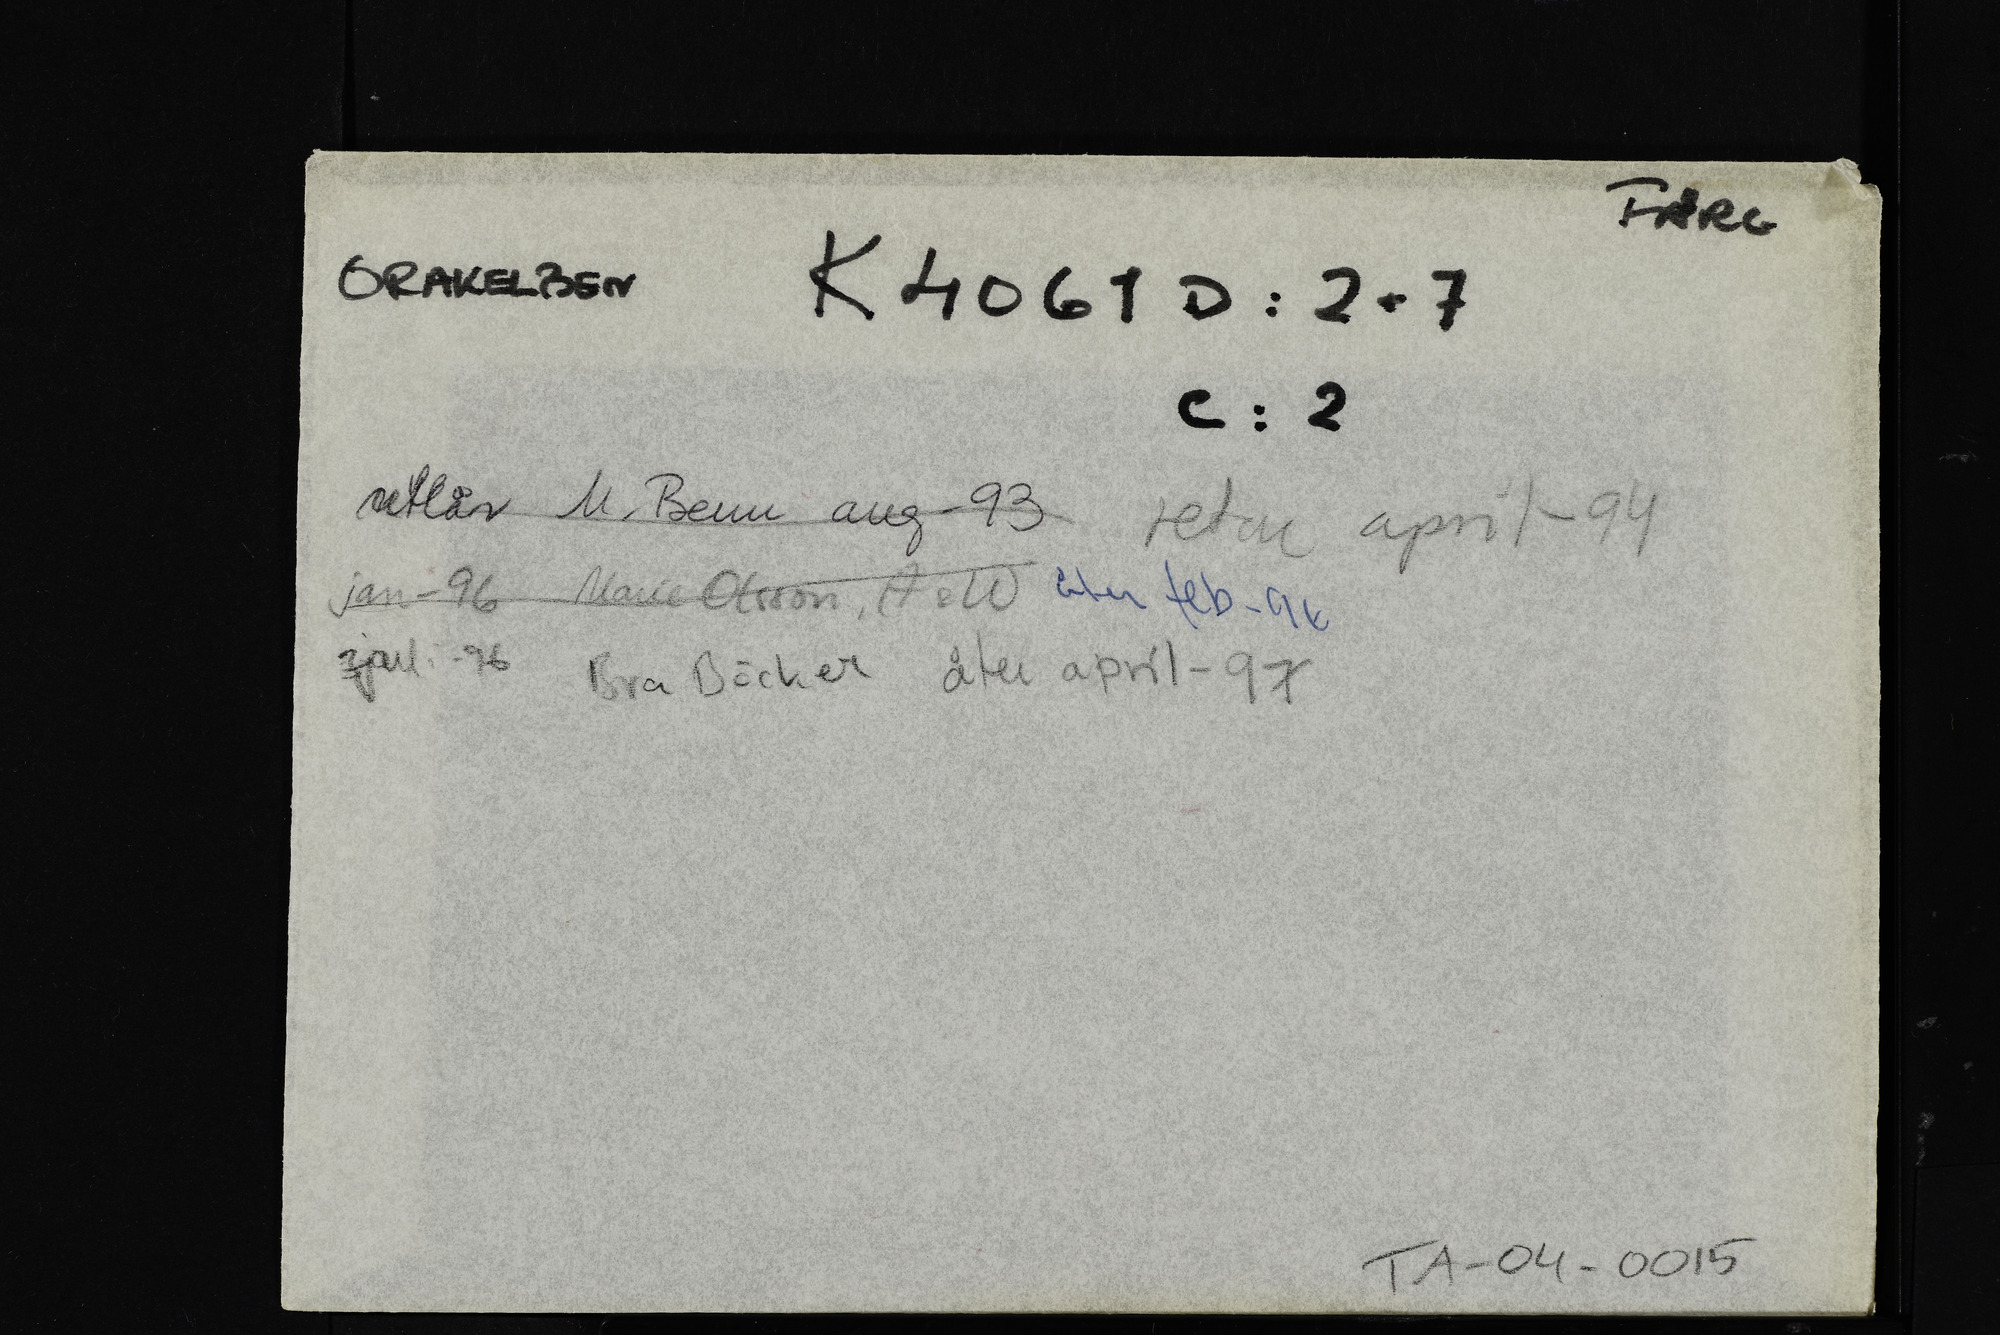 FÄRG
ORAKELBEN K 4061 D: 2+7
C: 2
utlån M. Benn aug-93 retur april-94
jan-96 Marie Olsson, åter feb-96
juli-96 Bra Böcker åter april-97
TA-04-0015